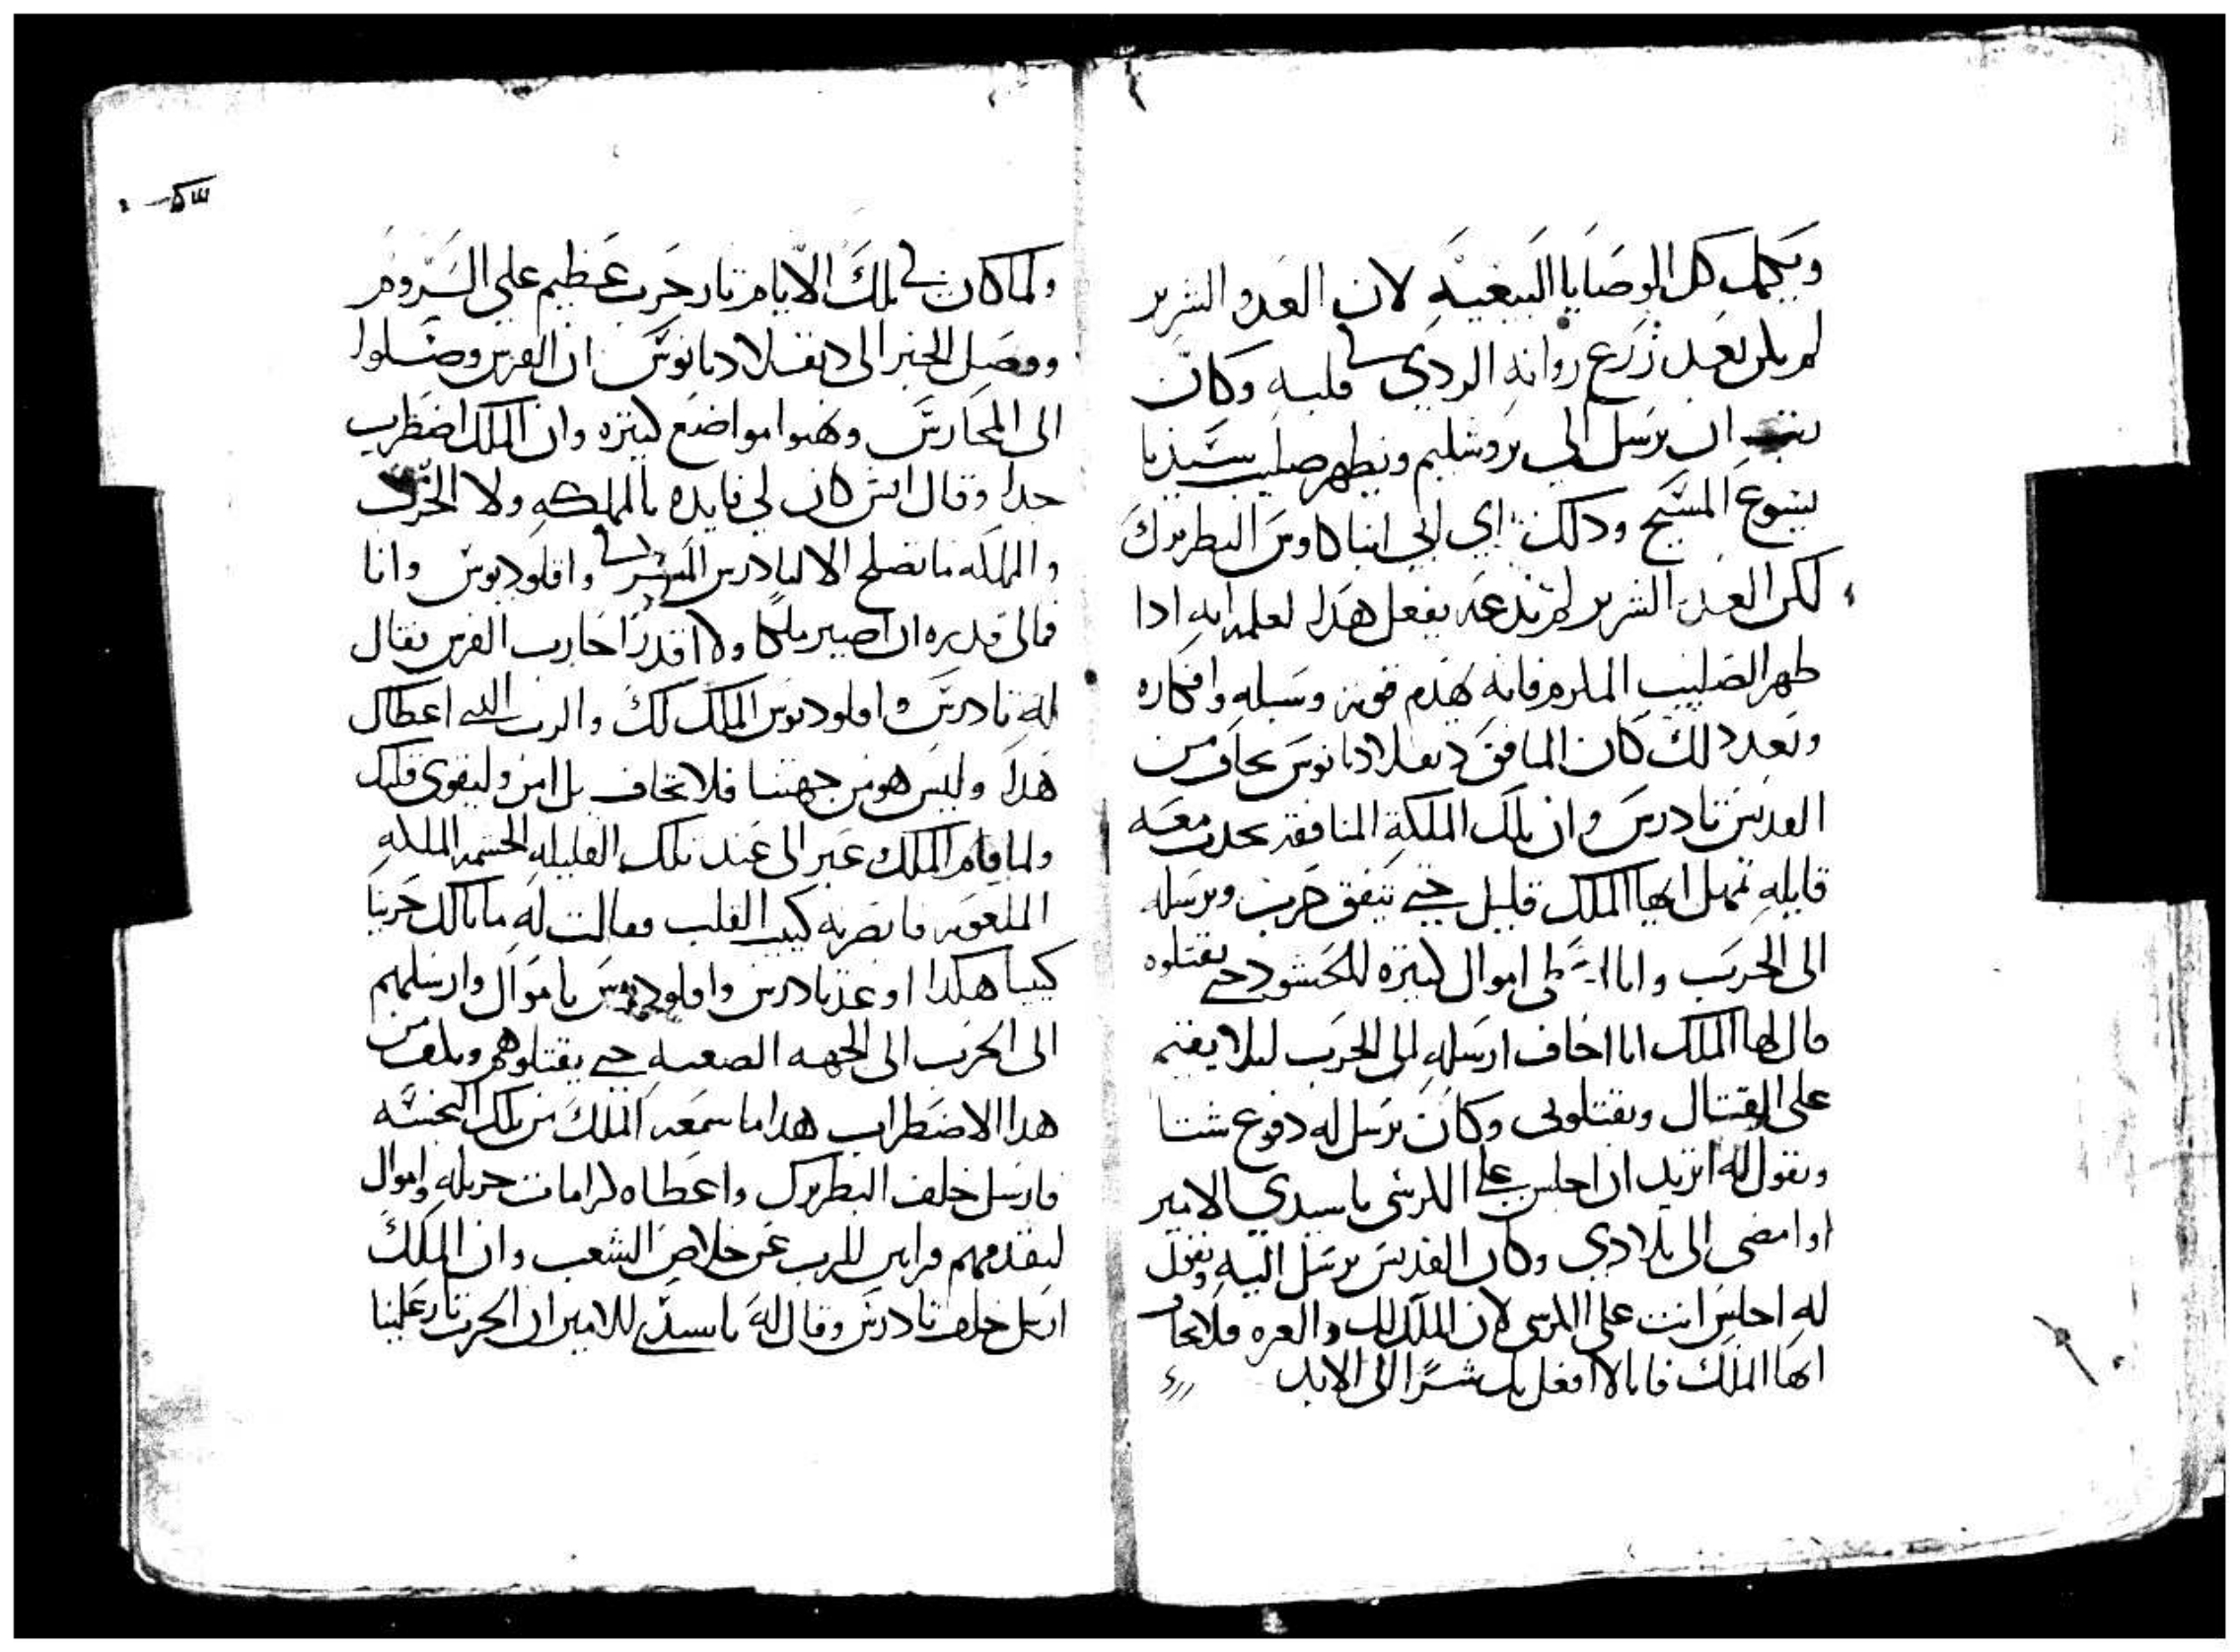 ويكمل كل الوصايا البيغيه لان العدو الشرير
لم يكن بعد زرع زوانه الردي في قلبه وكان
ان يرسل الي يروشليم ويظهر صليب سيدنا
يسوع المسيح ودلك الي انبا كاوس البطريرك
لكن العدو الشرير لم يدعه يفعل هدا لعلمه انه ادا
ظهر الصليب المكرم فانه يهدم قوته وسبله وافكاره
وبعد دلك كان المنافق ديقلاديانوس يخاف من
القديس تادرس وان تلك الملكة المنافقه تحدت معه
قايله تمهل ايها الملك قليل حتي يتفق حرب وترسله
الى الحرب وانا اعطى اموال كتيره للحشود حتي يقتلوه
قال لها الملك انا اخاف ارسله الى الحرب ليلا يفتم
على القتال ويقتلونى وكان يرسل له دفوع شتا
ويقول له اتريد ان اجلس على الكرسى يا سيدي الامير
او امضى الى بلادي وكان القديس يرسل اليه ويقول
له اجلس انت على الكرسى لان الملك لك والعزه فلا تخاف
ايها الملك فانا لا افعل بك شرًا الى الابد
ولما كان في تلك الايام تار حرب عظيم على الروم
ووصل الخبر الى ديقلاديانوس ان الفرس وصلوا
الى المحارس ونهبوا مواضع كتيره وان الملك اضطرب
جدا وقال ايش كان لي فايده بالمملكه ولا الحرب
والمملكه ما تصلح الا لتادرس المشرقي واقلوديوس وانا
فمالى قدره ان اصير ملكا ولا اقدر احارب الفرس فقال
له تادرس واقلوديوس الملك لك والرب الدي اعطاك
هدا وليس هو من جهتنا فلا تخاف بل امن وليقوى قلبك
ولما قام الملك عبر الى عند تلك القليله الحشمه الملكه
الملعونه فابصرته كييب القلب فقالت له ما بالك حزينا
كييبا هكدا اوعد تادرس واقلوديوس باموال وارسلهم
الى الحرب الى الجهه الصعبه حتي يقتلوهم وتكف من
هدا الاضطراب هدا ما سمعه الملك من تلك النجسه
فارسل خلف البطريرك واعطاه كرامات جزيله واموال
ليقدمهم قرابين للرب عن خلاص الشعب وان الملك
ارسل خلف تادرس وقال له يا سيدي الامير ان الحرب تار علينا